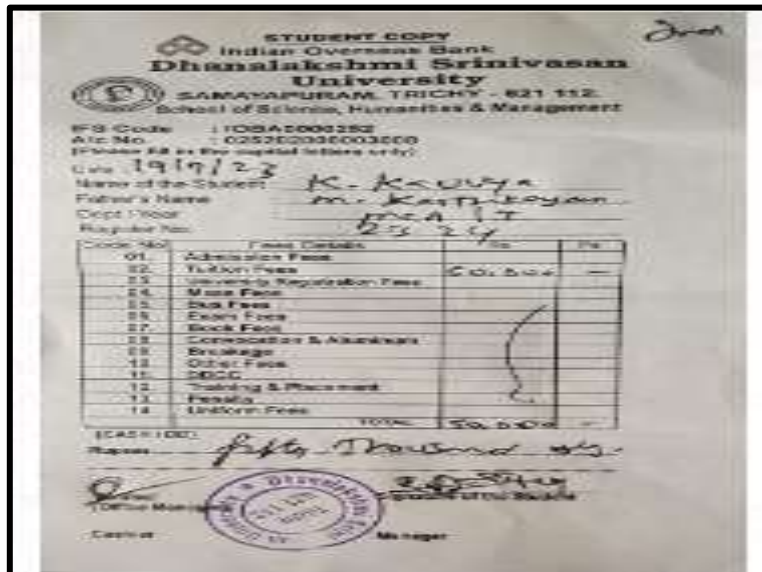 STUDENT COPY
Indian Overseas Bank
Dhanalakshmi Srinivasan
University
SAMAYAPURAM, TRICHY - 621 112.
School of Science, Humanities & Management
IFS Code : IOBA0000252
A/c No : 025202000003000
(Please fill in the capital letters only)
Date 19/7/23
Name of the Student K. Kaviya
Father's Name M. Karthikeyan
Dept / Year
Register No.
Code No Fees Details Rs. Ps.
01. Admission Fees
02. Tuition Fees 50,000 -
03. University Registration Fees
04. Mess Fees
05. Bus Fees
06. Exam Fees
07. Book Fees
08. Convocation &
09. Breakage
10. Other Fees
11.
12. Training & Placement
13. Penalty
14. Uniform Fees
TOTAL 50,000 -
(CASH / DD)
Rupees fifty Thousand only.
Signature of the Student
Office Manager
Cashier Manager